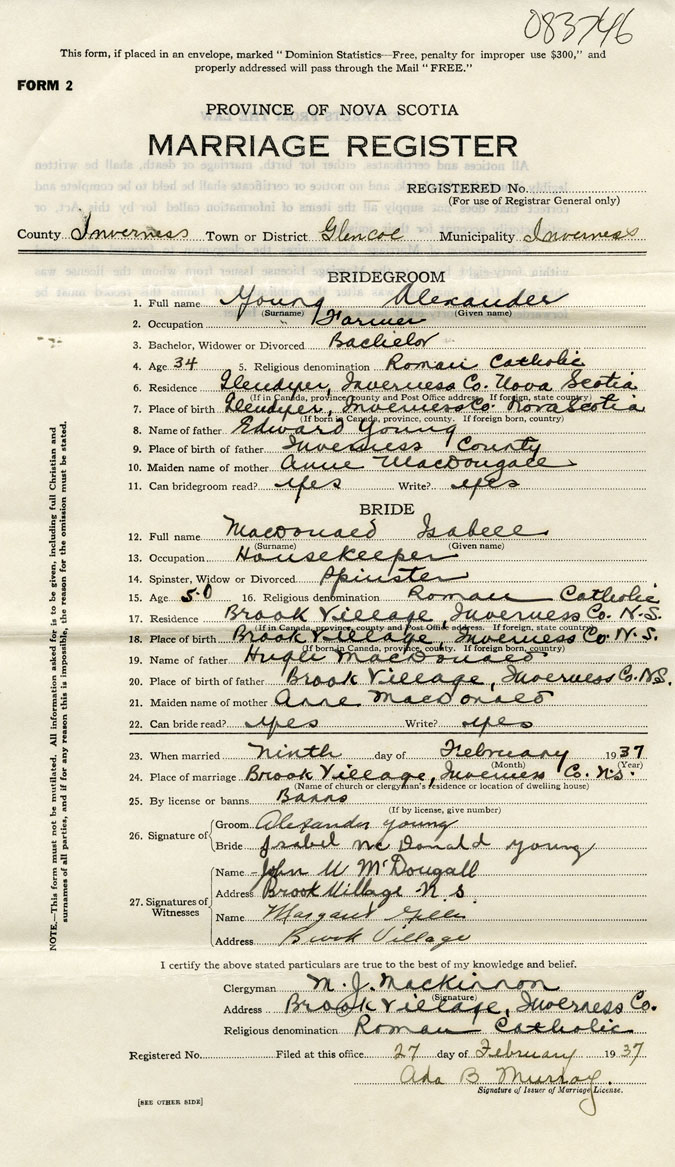 083746
This form, if placed in an envelope, marked "Dominion Statistics—Free, penalty for improper use $300," and
properly addressed will pass through the Mail "FREE."
FORM 2
PROVINCE OF NOVA SCOTIA
MARRIAGE REGISTER
REGISTERED No.
(For use of Registrar General only)
County Inverness Town or District Glencoe Municipality Inverness
BRIDEGROOM
1. Full name Young Alexander
(Surname) (Given name)
2. Occupation Farmer
3. Bachelor, Widower or Divorced Bachelor
4. Age 34 5. Religious denomination Roman Catholic
6. Residence Glendyer, Inverness Co. Nova Scotia
(If in Canada, province, county and Post Office address. If foreign, state country)
7. Place of birth Glendyer, Inverness Co. Nova Scotia
(If born in Canada, province, county. If foreign born, country)
8. Name of father Edward Young
9. Place of birth of father Inverness County
10. Maiden name of mother Anne MacDougall
11. Can bridegroom read? yes Write? yes
BRIDE
12. Full name MacDonald Isabell
(Surname) (Given name)
13. Occupation Housekeeper
14. Spinster, Widow or Divorced Spinster
15. Age 50 16. Religious denomination Roman Catholic
17. Residence Brook Village, Inverness Co. N.S.
(If in Canada, province, county and Post Office address. If foreign, state country)
18. Place of birth Brook Village, Inverness Co. N.S.
(If born in Canada, province, county. If foreign born, country)
19. Name of father Hugh MacDonald
20. Place of birth of father Brook Village, Inverness Co. N.S.
21. Maiden name of mother Anne MacDonald
22. Can bride read? yes Write? yes
23. When married Ninth day of February 1937
(Month) (Year)
24. Place of marriage Brook Village, Inverness Co. N.S.
(Name of church or clergyman's residence or location of dwelling house)
25. By license or banns Banns
(If by license, give number)
26. Signature of
Groom Alexander Young
Bride Isabel McDonald Young
27. Signatures of Witnesses
Name John McDougall
Address Brook Village N.S.
Name Margaret
Address Brook Village
I certify the above stated particulars are true to the best of my knowledge and belief.
Clergyman M. J. Mackinnon
(Signature)
Address Brook Village, Inverness Co.
Religious denomination Roman Catholic
Registered No. Filed at this office 27 day of February 1937
Ada B Murray.
Signature of Issuer of Marriage License.
[SEE OTHER SIDE]
NOTE.—This form must not be mutilated. All information asked for is to be given, including full Christian and
surnames of all parties, and if for any reason this is impossible, the reason for the omission must be stated.